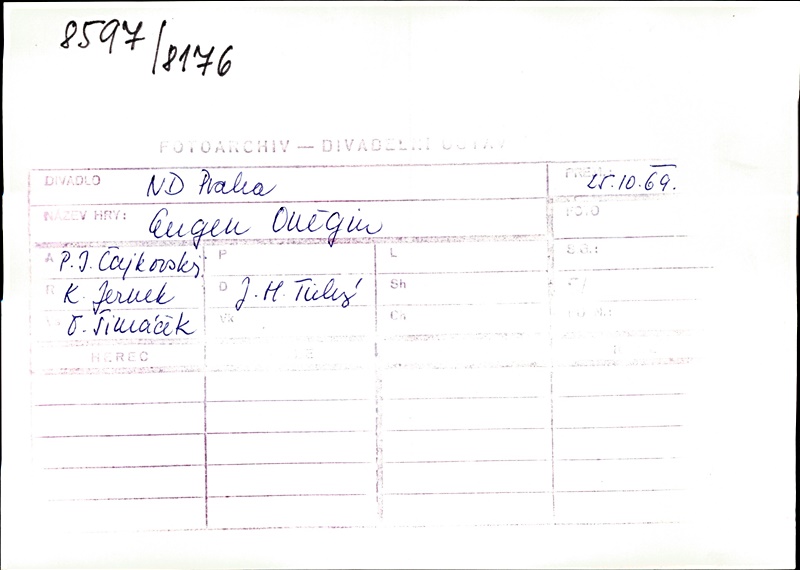 8597/8176
FOTOARCHIV — DIVADELNÍ ÚSTAV
DIVADLO ND Praha
25.10.69.
NÁZEV HRY: Eugen Oněgin
A P. I. Čajkovskij P L
R K. Jernek D J. H. Tichý Sh
O. Šimáček Vk Ch
HEREC